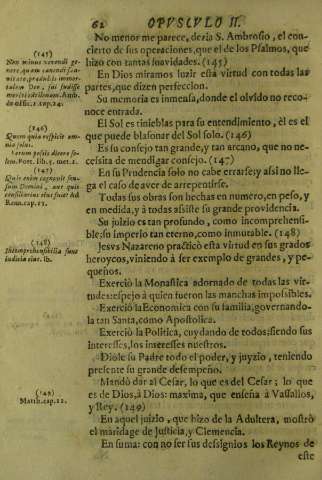 62 OPUSCULO II.
No menor me parece, deria S. Ambrosio, el con-
cierto de sus operaciones, que el de los Psalmos, que
hizo con tantas suavidades. (145)
En Dios miramos luzir esta virtud con todas las
partes, que dizen perfeccion.
Su memoria es inmensa, donde el olvido no reco-
noce entrada.
El Sol es tinieblas para su entendimiento, él es el
que puede blasonar del Sol solo. (146)
Es su consejo tan grande, y tan arcano, que no ne-
cesita de mendigar consejo. (147)
En su Prudencia solo no cabe errarse; y asi no lle-
ga el caso de aver de arrepentirse.
Todas sus obras son hechas en numero, en peso, y
en medida, y à todas asiste su grande providencia.
Su juizio es tan profundo, como incomprehensi-
ble; su imperio tan eterno, como inmutable. (148)
Jesvs Nazareno practicò esta virtud en sus grados
heroycos, viniendo à ser exemplo de grandes, y pe-
queños.
Exerciò la Monastica adornado de todas las vir-
tudes: espejo à quien fueron las manchas impossibles.
Exerciò la Economica con su familia, governando-
la tan Santa, como Apostolica.
Exerciò la Politica, cuydando de todos; siendo sus
interesses, los interesses nuestros.
Diole su Padre todo el poder, y juyzio, teniendo
presente su grande desempeño.
Mandò dar al Cesar, lo que es del Cesar; lo que
es de Dios, à Dios: maxima, que enseña à Vassallos,
y Rey. (149)
En aquel juizio, que hizo de la Adultera, mostrò
el maridage de Justicia, y Clemencia.
En suma: con no ser sus dessignios los Reynos de
este
(145)
Non minus vivendi ge-
nere, quam canendi sua-
vitate,
do offic. 1. cap. 24.
(146)
Quem quia respicit om-
nia solus.
Verum possis dicere So-
lem. Poet. lib. 5. met. 2.
(147)
Quis enim cognovit sen-
sum Domini, aut quis
consiliarius eius fuit? Ad
Rom. cap. 11.
(148)
Incomprehensibilia sunt
iudicia eius. ib.
(149)
Matth. cap. 22.